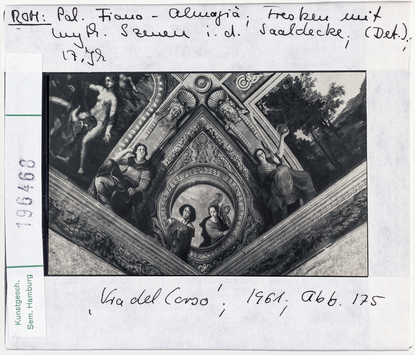 ROM: Pal. Fiano - Almagià; Fresken mit
myth. Szenen i. d. Saaldecke; (Det.);
17. Jh
196468
Kunstgesch.
Sem. Hamburg
'Via del Corso'; 1961; Abb. 175